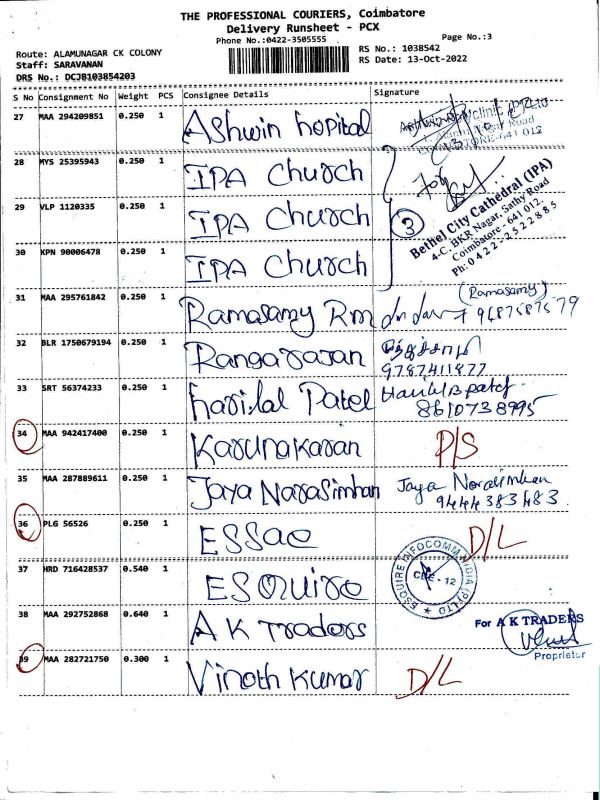 THE PROFESSIONAL COURIERS, Coimbatore
Delivery Runsheet - PCX
Phone No.:0422-3505555
Page No.:3
Route: ALAMUNAGAR CK COLONY
RS No.: 1038542
Staff: SARAVANAN
RS Date: 13-Oct-2022
DRS No.: DCJB103854203
S No Consignment No Weight PCS Consignee Details Signature
27 MAA 294209851 0.250 1 Ashwin hopital
COIMBATORE-641 012
28 MYS 25395943 0.250 1 IPA Church
For
29 VLP 1120335 0.250 1 IPA Church
3
Bethel City Cathedral (IPA)
4-C, BKR Nagar, Sathy Road
Coimbatore - 641 012.
Ph: 0422-2522885
30 KPN 90006478 0.250 1 IPA Church
31 MAA 295761842 0.250 1 Ramasamy Rm (Ramasamy)
32 BLR 1750679194 0.250 1 Rangarajan
9787411877
33 SRT 56374233 0.250 1 harilal Patel
8610738995
34 MAA 942417400 0.250 1 Karunakaran P/S
35 MAA 287889611 0.250 1 Jaya Narasimhan Jaya Narasimhan
9444383483
36 PLG 56526 0.250 1 ESSae D/L
37 HRD 716428537 0.540 1 ESQuire ESQUIRE INFOCOMM INDIA (P) LTD
CBE - 12
38 MAA 292752868 0.640 1 A K Traders For A K TRADERS
Proprietor
39 MAA 282721750 0.300 1 Vinoth Kumar D/L